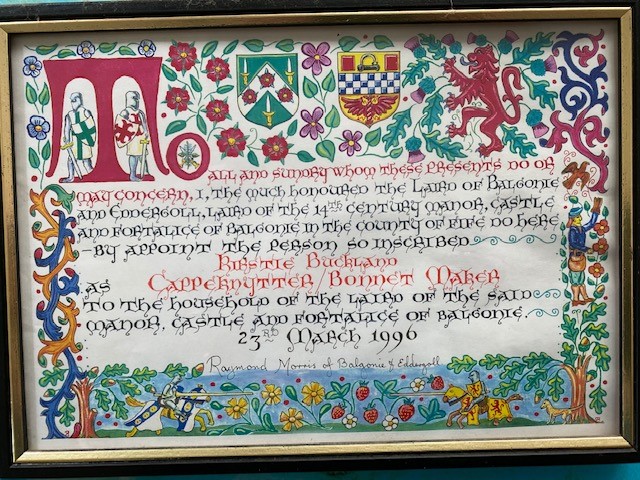 To all and sundry whom these presents do or
may concern, I, the much honoured the Laird of Balgonie
and Eddergoll, Laird of the 14th century manor, castle
and fortalice of Balgonie in the county of Fife do here
by appoint the person so inscribed
Kirstie Buckland
as Cappeknytter/Bonnet Maker
to the household of the Laird of the said
manor, castle and fortalice of Balgonie.
23rd March 1996
Raymond Morris of Balgonie & Eddergoll